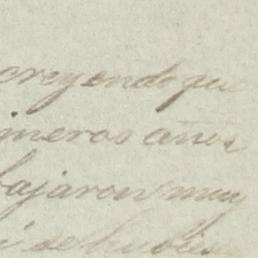 creyendo que
imeros años
bajaron muy
i se hubies